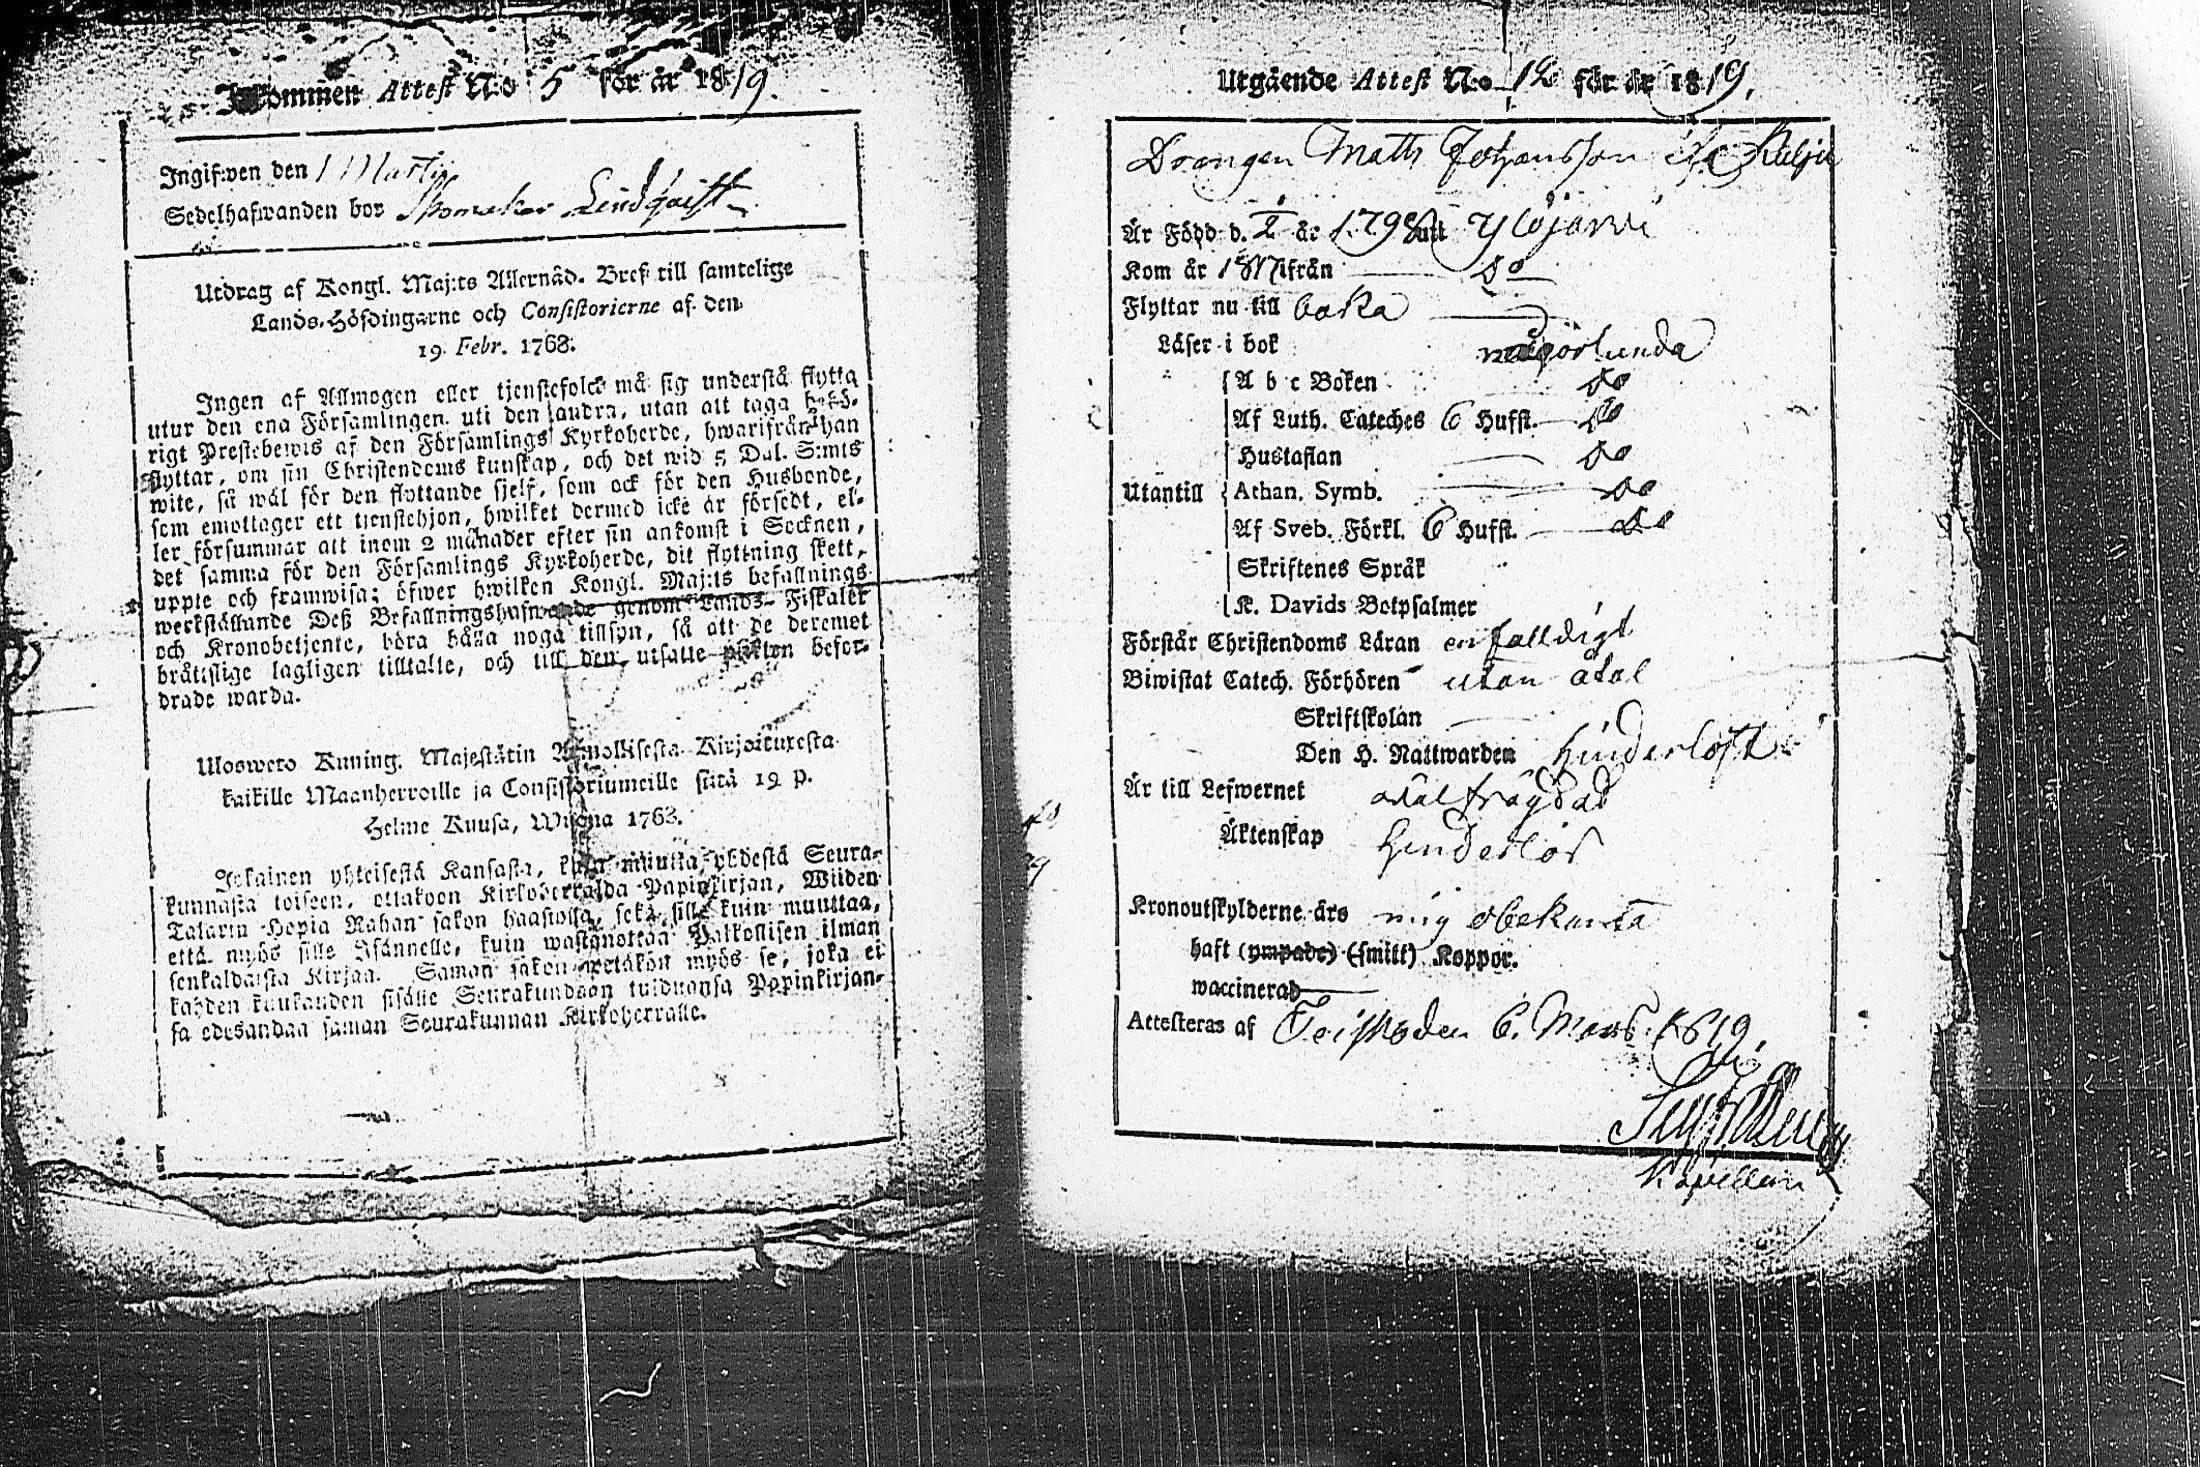 Inkommen Attest N:o 5 för år 1819.
Ingifwen den 1 Martij
Sedelhafwanden bor Skomakar Lindqvist
Utdrag af Kongl. Maj:ts Allernåd. Bref till samtelige
Lands-Höfdingarne och Consistorierne af den
19 Febr. 1763.
Ingen af Allmogen eller tjenstefolck må sig understå flytta
utur den ena Församlingen uti den andra, utan att taga behö-
rigt Prestebewis af den Församlings Kyrkoherde, hwarifrån han
flyttar, om sin Christendoms kunskap, och det wid 5 Dal. S:mts
wite, så wäl för den flyttande sjelf, som ock för den Husbonde,
som emottager ett tjenstehjon, hwilket dermed icke är försedt, el-
ler försummar att inom 2 månader efter sin ankomst i Socknen,
det samma för den Församlings Kyrkoherde, dit flyttning skett,
uppte och framwisa; öfwer hwilken Kongl. Maj:ts befallnings
werkställande Deß Befallningshafwande genom Lands-Fiskaler
och Kronobetjente, böra hålla noga tillsyn, så att de deremot
brättslige lagligen tilltalte, och till den utsatte plikten befor-
drade warda.
Uloswето Kuning. Majestätin Armollisesta Kirjoituxesta
kaikille Maanherroille ja Consistoriumeille siitä 19 p.
Helme Kuusa, Wuonna 1763.
Jokainen yhteisestä Kansasta, kuin muutta yhdestä Seura-
kunnasta toiseen, ottakoon Kirkoherralda Papinkirjan, Wiiden
Talarin Hopia Rahan sakon haastolla, sekä sille kuin muuttaa,
että myös sille Isännelle, kuin wastanottaa Palkollisen ilman
senkaldaista Kirjaa. Saman sakon wetäkön myös se, joka ei
kahden kuukauden sisälle Seurakundaan tulduansa Papinkirjan-
sa edesandaa saman Seurakunnan Kirkoherralle.
Utgående Attest N:o 12 för år 1819.
Drangen Matts Johansson
Är Född d. år 179 uti Ylöjärvi
Kom år 1817 ifrån do
Flyttar nu till baka
Läser i bok någorlunda
A b c Boken do
Af Luth. Cateches 6 Hufst. do
Hustaflan do
Utantill Athan. Symb. do
Af Sveb. Förkl. 6 Hufst. do
Skriftenes Språk
K. Davids Botpsalmer
Förstår Christendoms Läran enfalldigt
Biwistat Catech. Förhören utan åtal
Skriftskolan
Den H. Nattwarden hinderlöst
Är till Lefwernet oåtalfrägdad
Äktenskap hinderlös
Kronoutskylderne års mig obekanta
haft (ympade) (smitt) Koppor.
waccinerad
Attesteras af Teisko den 6. Mars 1819.
Kapellan